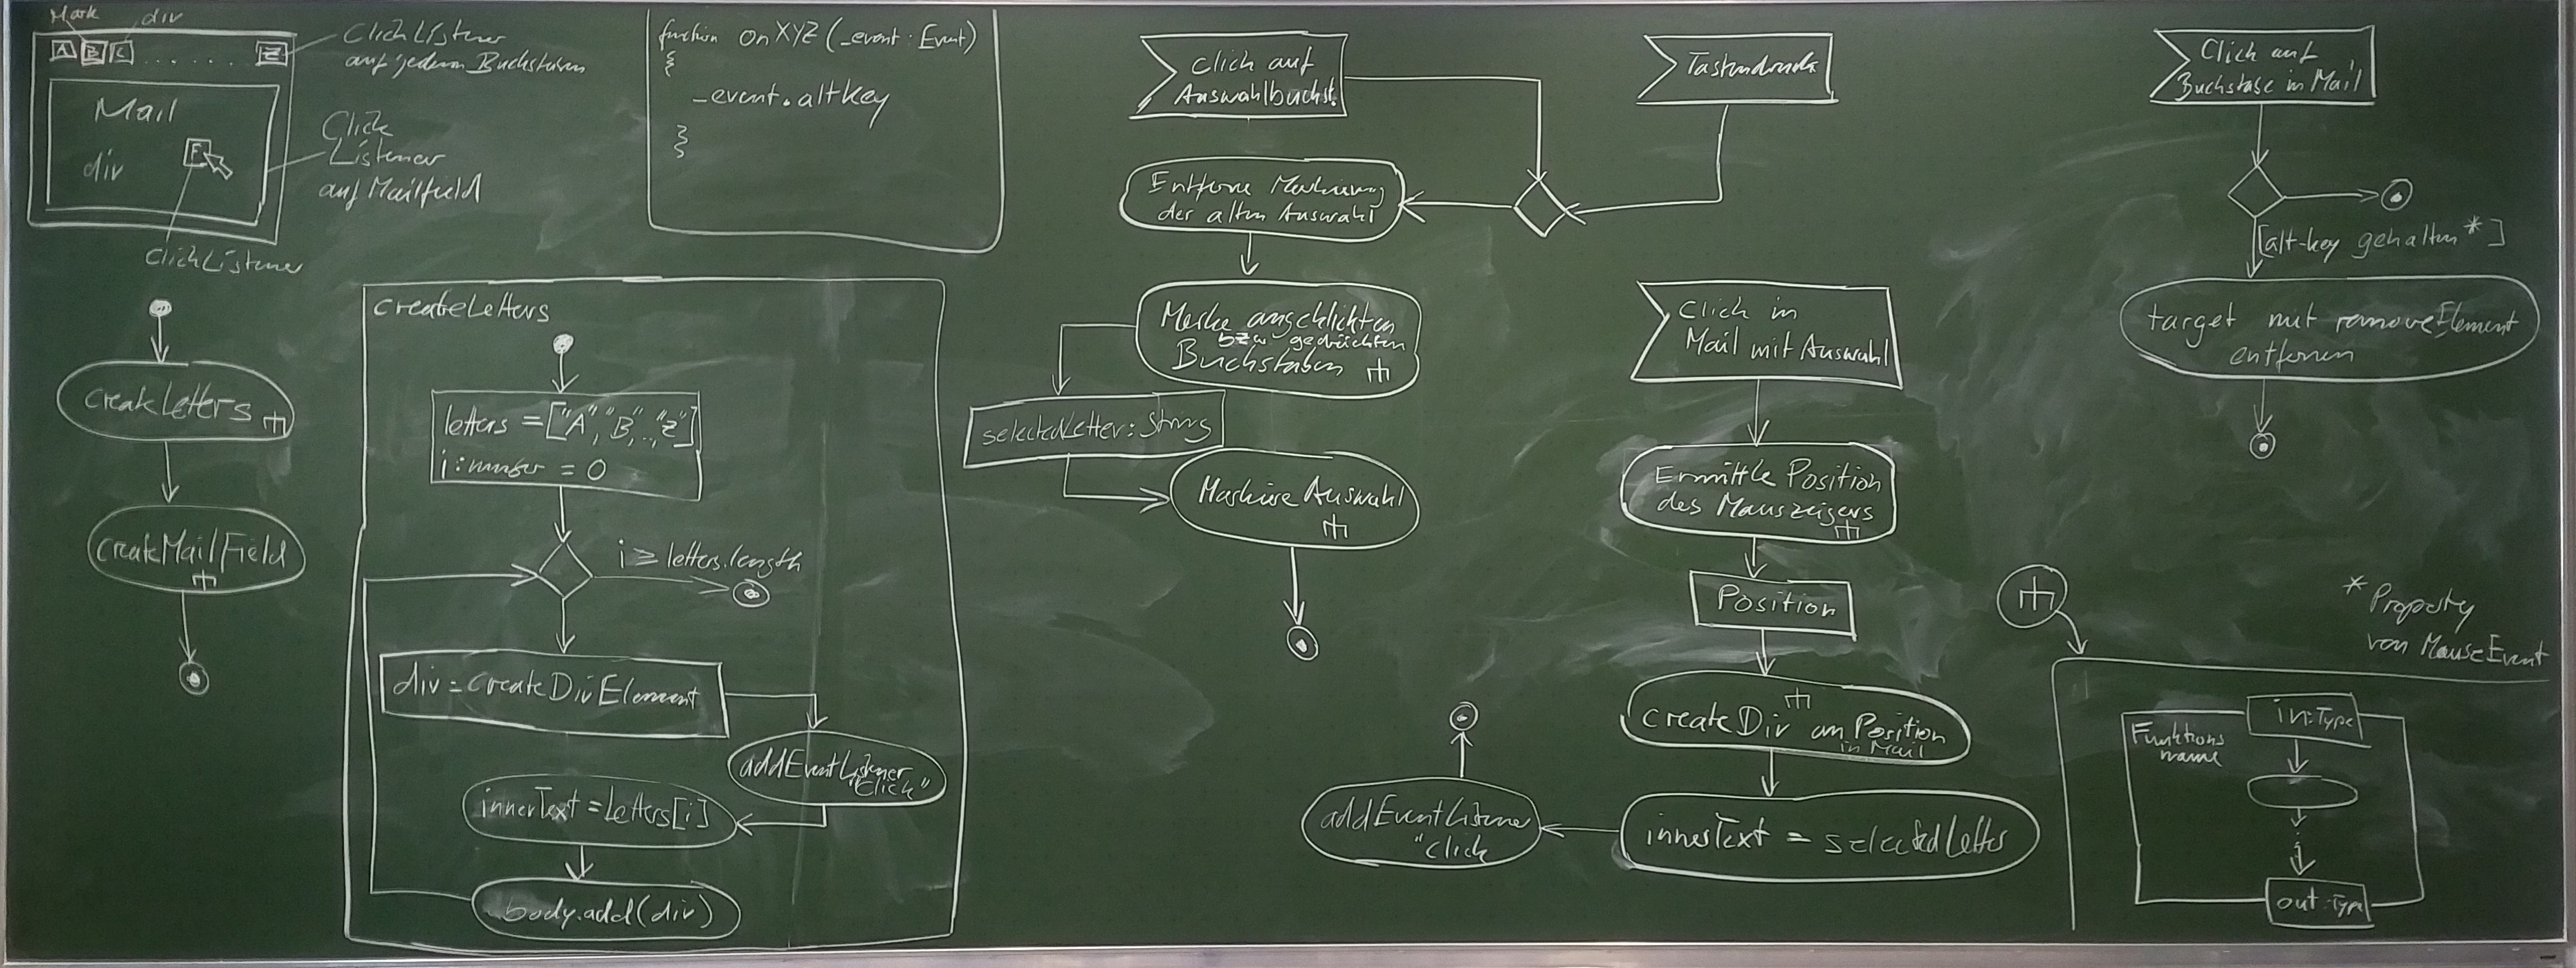 Mark
div
A B C . . . . . . Z
ClickListener
auf jedem Buchstaben
Mail
div
E
Click
Listener
auf Mailfield
ClickListener
function onXYZ (_event: Event)
{
_event.altkey
}
createLetters
createMailField
createLetters
letters = ["A", "B", .., "Z"]
i : number = 0
i ≥ letters.length
div = createDivElement
addEventListener
"Click"
innerText = letters[i]
body.add(div)
Click auf
Auswahlbuchst.
Tastendruck
Entferne Markierung
der alten Auswahl
Merke angeklickten
bzw gedrückten
Buchstaben
selectedLetter: String
Markiere Auswahl
Click in
Mail mit Auswahl
Ermittle Position
des Mauszeigers
Position
createDiv an Position
in Mail
innerText = selectedLetter
addEventListener
"Click
Click auf
Buchstabe in Mail
[alt-key gehalten *]
target mit removeElement
entfernen
* Property
von MouseEvent
Funktions
name
in:Type
out:Type